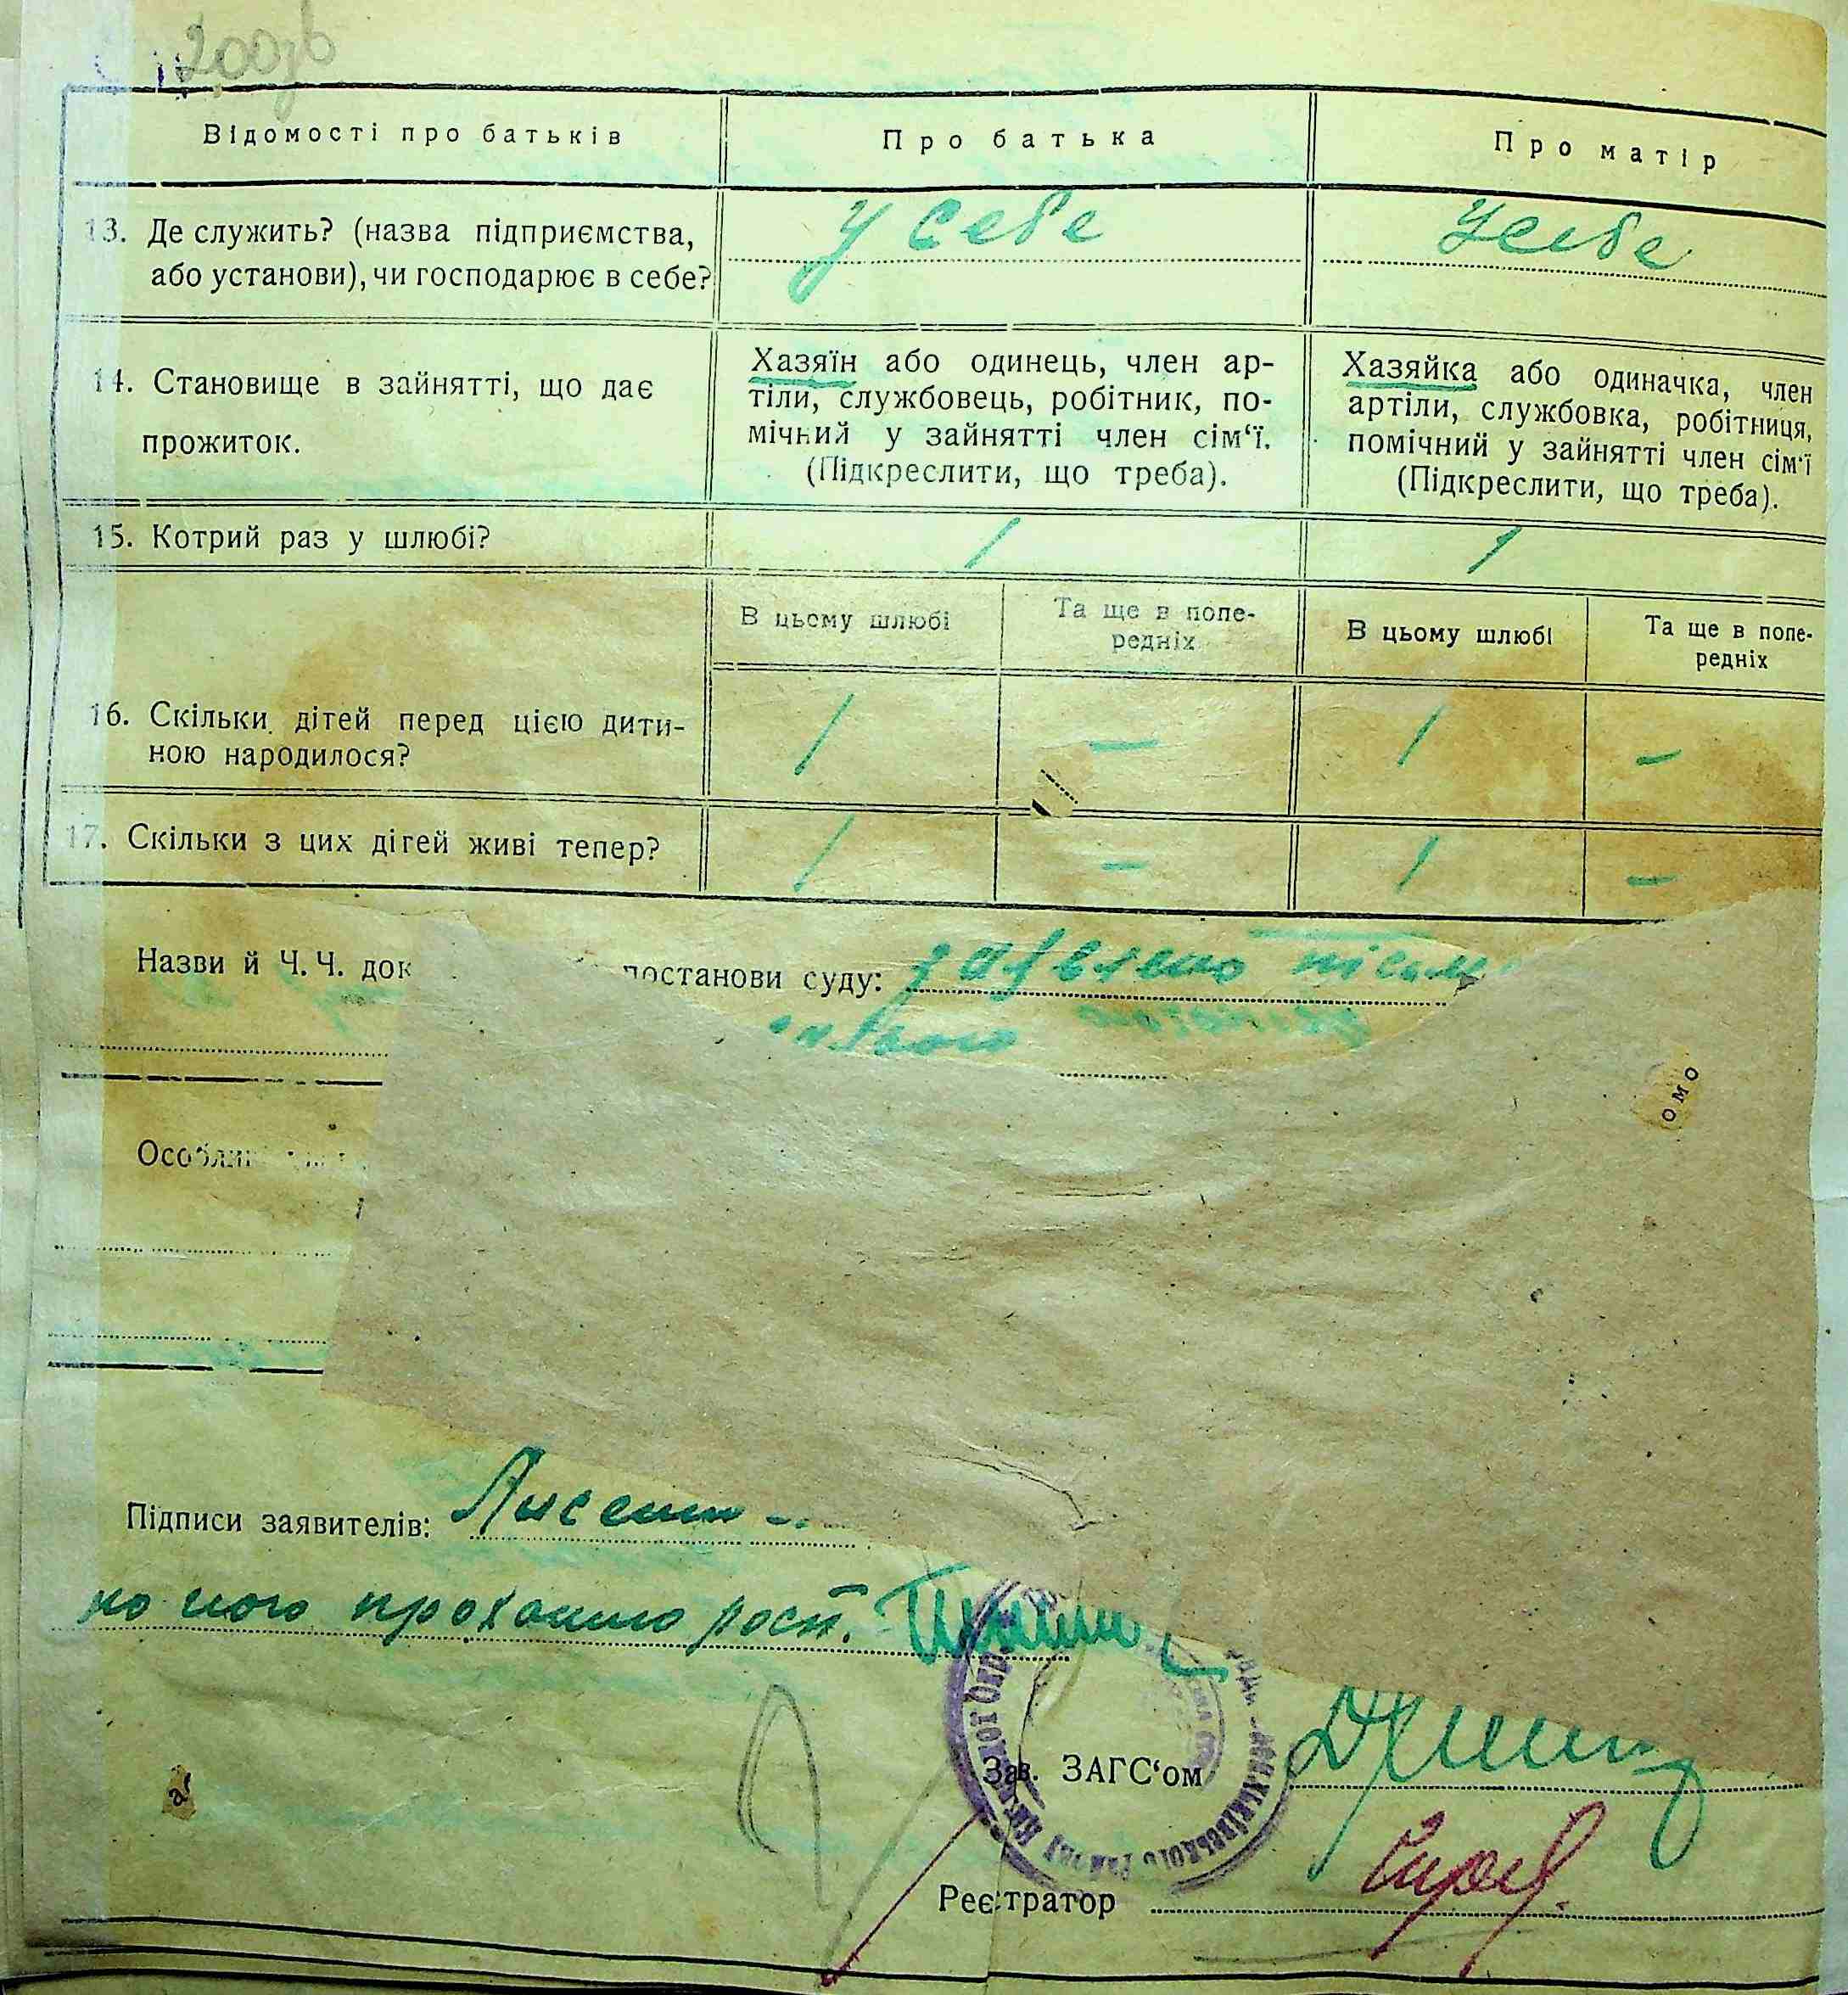 200зв
Відомості про батьків
Про батька
Про матір
13. Де служить? (назва підприємства,
або установи), чи господарює в себе?
у себе
у себе
14. Становище в зайнятті, що дає
прожиток.
Хазяїн або одинець, член ар-
тіли, службовець, робітник, по-
мічний у зайнятті член сім‘ї.
(Підкреслити, що треба).
Хазяйка або одиначка, член
артіли, службовка, робітниця,
помічний у зайнятті член сім‘ї
(Підкреслити, що треба).
15. Котрий раз у шлюбі?
1
1
В цьому шлюбі
Та ще в попе-
редніх
В цьому шлюбі
Та ще в попе-
редніх
16. Скільки дітей перед цією дити-
ною народилося?
1
—
1
—
17. Скільки з цих дітей живі тепер?
1
—
1
—
Назви й Ч. Ч. док постанови суду: заявлено
омо
Підписи заявителів: Лисенко
по його проханню росп.
Зав. ЗАГС‘ом
Реєстратор